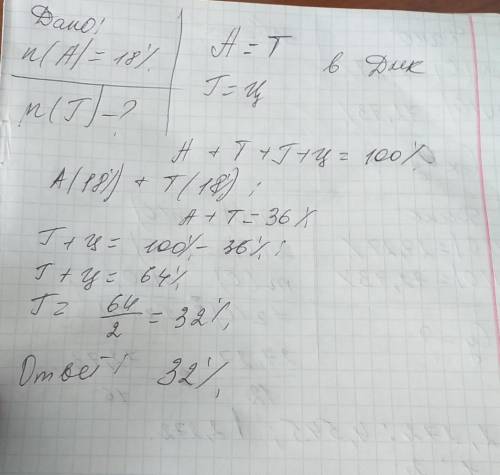 Дано:
n(А) = 18%
n(Г) - ?
А = Т
Г = Ц
в Днк
А + Т + Г + Ц = 100%
А(18%) + Т(18%);
А + Т = 36%
Г + Ц = 100% - 36%;
Г + Ц = 64%
Г = 64/2 = 32%,
Ответ: 32%,